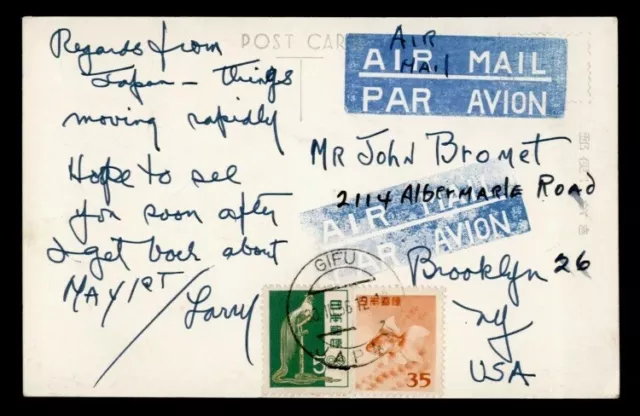 POST CARD
AIR MAIL
PAR AVION
AIR
MAIL
Regards from
Japan – things
moving rapidly
Hope to see
you soon after
I get back about
MAY 1ST
Larry
MR John Bromet
2114 Albermarle Road
Brooklyn 26
NY
USA
AIR MAIL
PAR AVION
GIFU
56
JAPAN
日本郵便
5
日本郵便
35